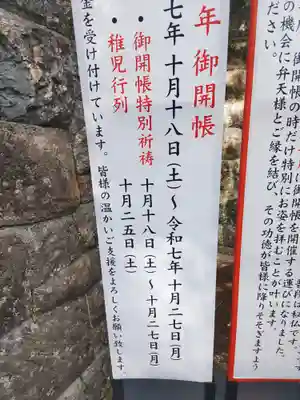 御開帳を開催する運びになりました。
御開帳の時だけ特別にお姿を拝むことが叶います。
の機会に弁天様とご縁を結び、その功徳が皆様に降りそそぎますよう
ださい。
年 御開帳
七年 十月十八日(土)～令和七年 十月二七日(月)
・御開帳特別祈祷 十月十八日(土)～十月二七日(月)
・稚児行列 十月二五日(土)
金を受け付けています。皆様の温かいご支援をよろしくお願い致します。